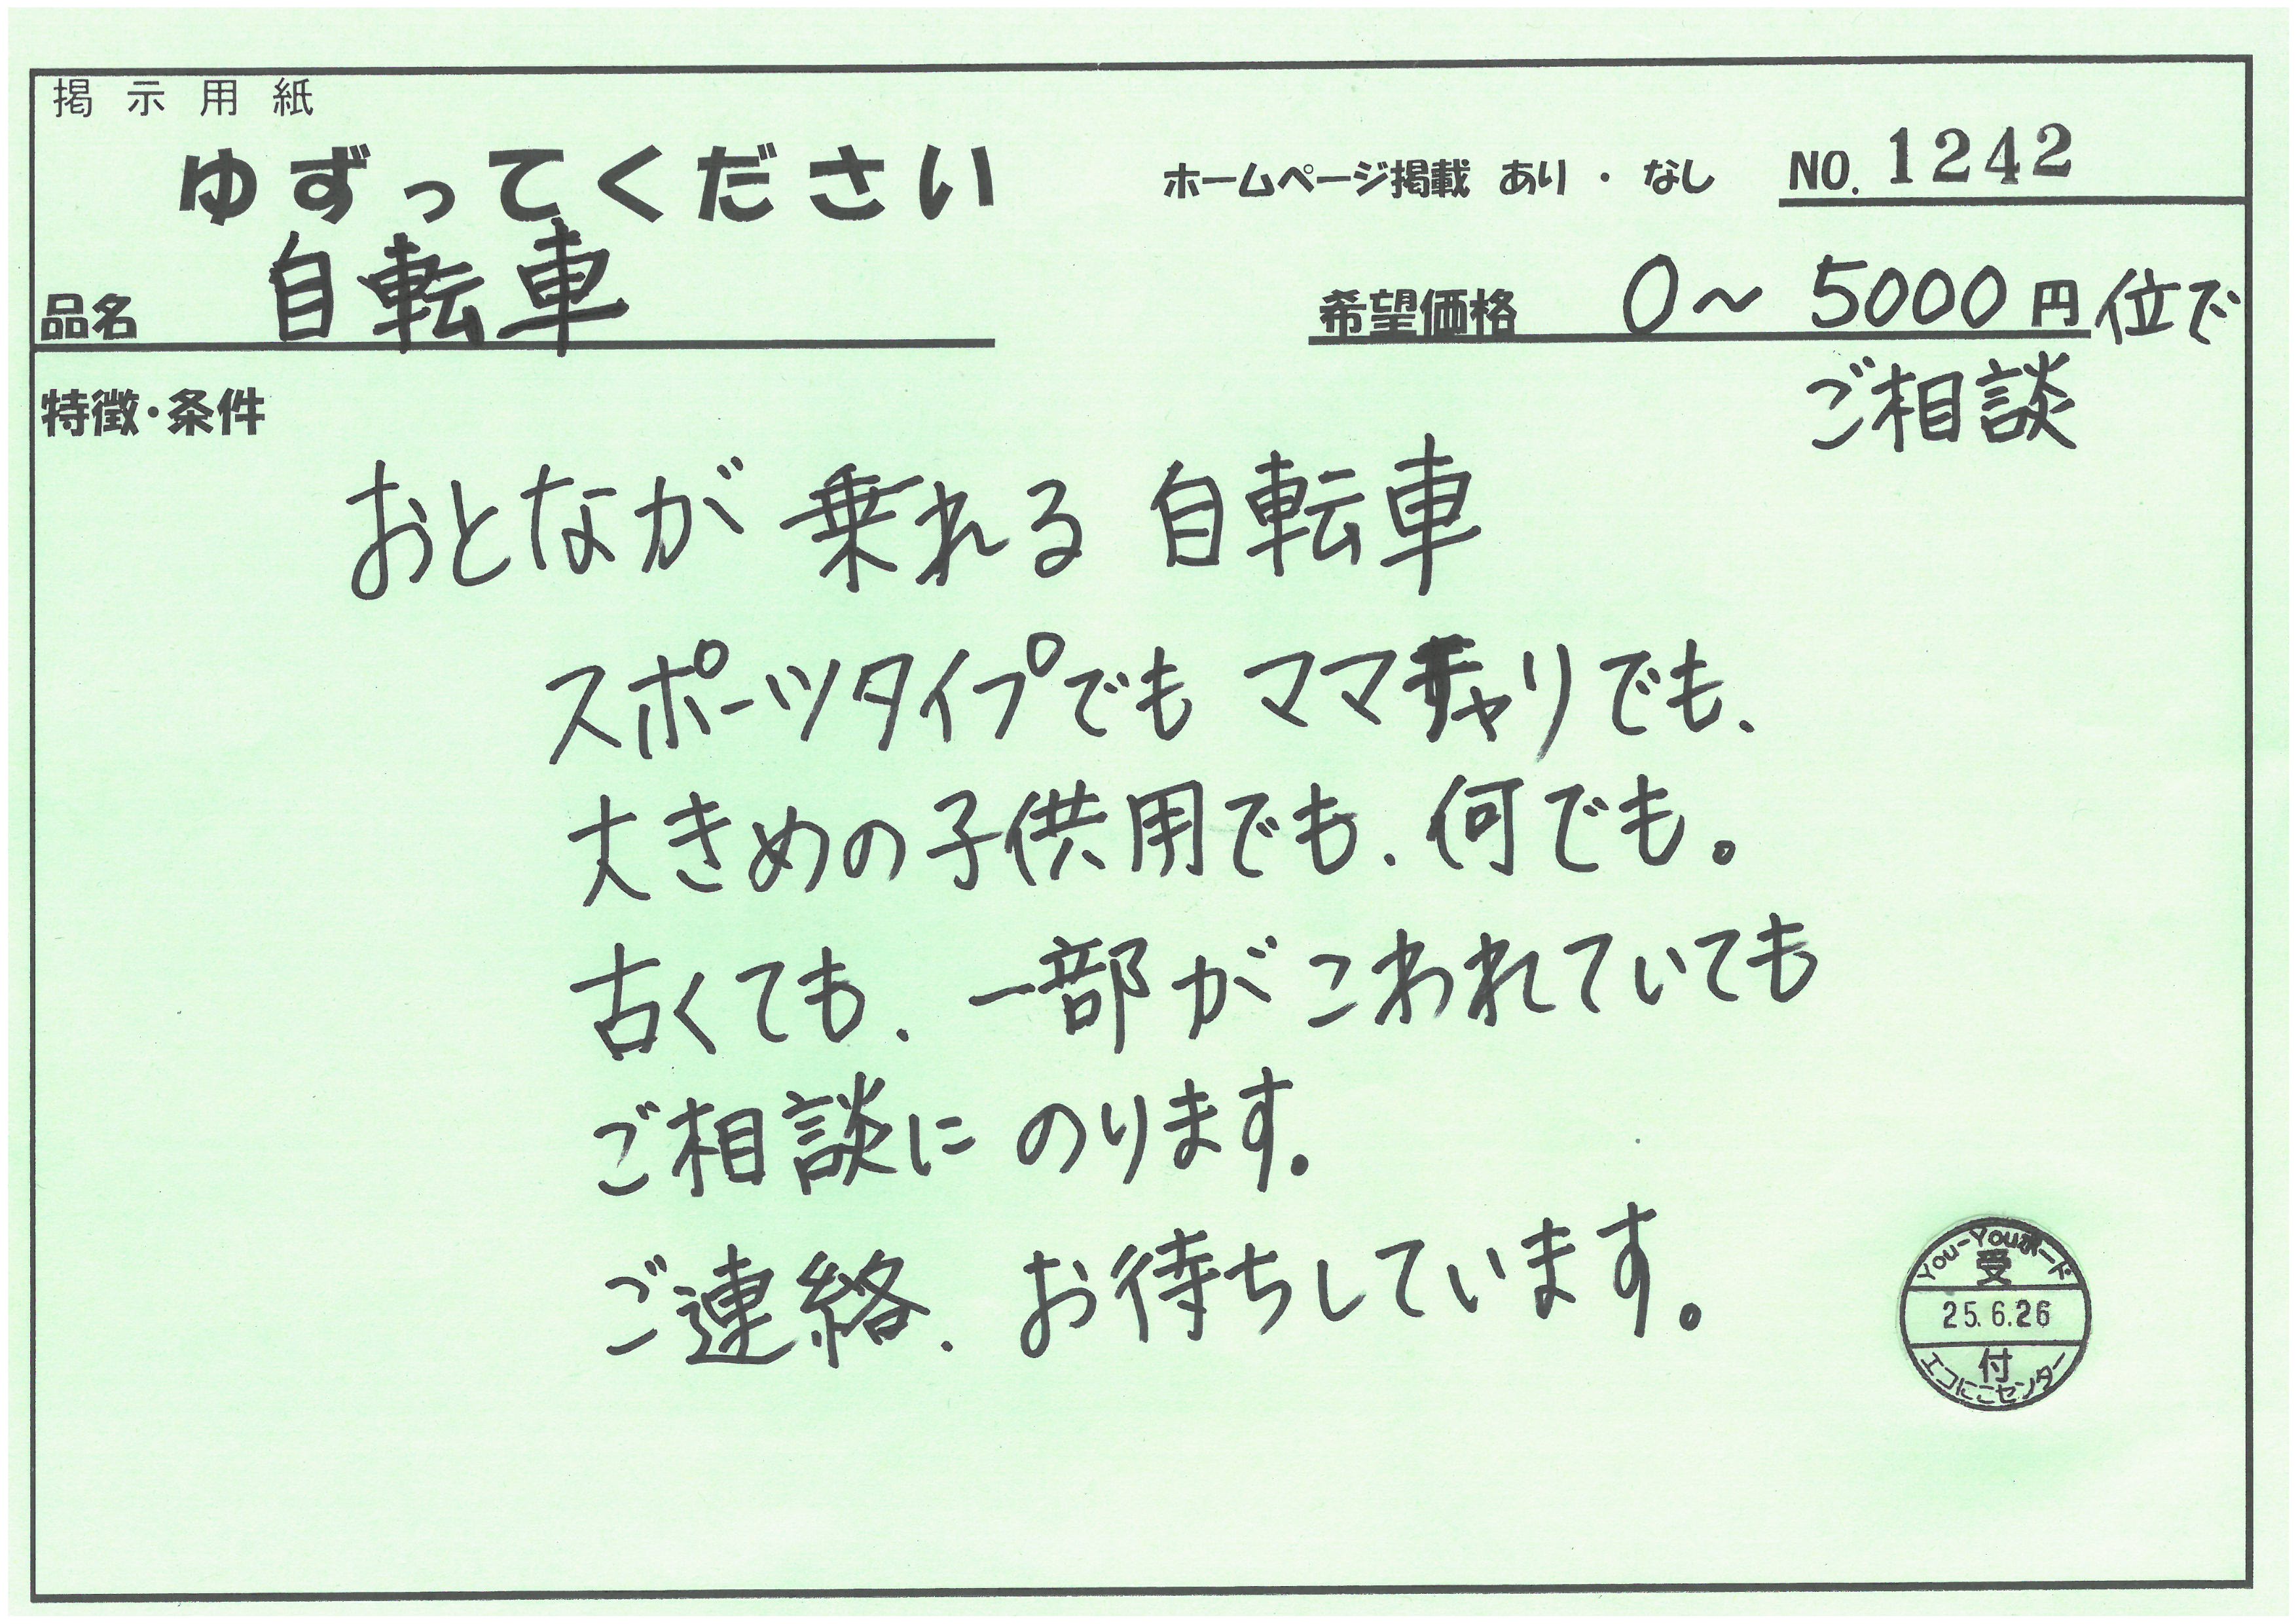 掲示用紙
ゆずってください
ホームページ掲載 あり ・ なし
NO. 1242
品名 自転車
希望価格 0〜 5000円位で
ご相談
特徴・条件
おとなが 乗れる 自転車
スポーツタイプでも ママチャリでも、
大きめの子供用でも、何でも。
古くても、一部がこわれていても
ご相談に のります。
ご連絡、お待ちしています。
You-Youボード
受
25.6.26
付
エコにこセンター